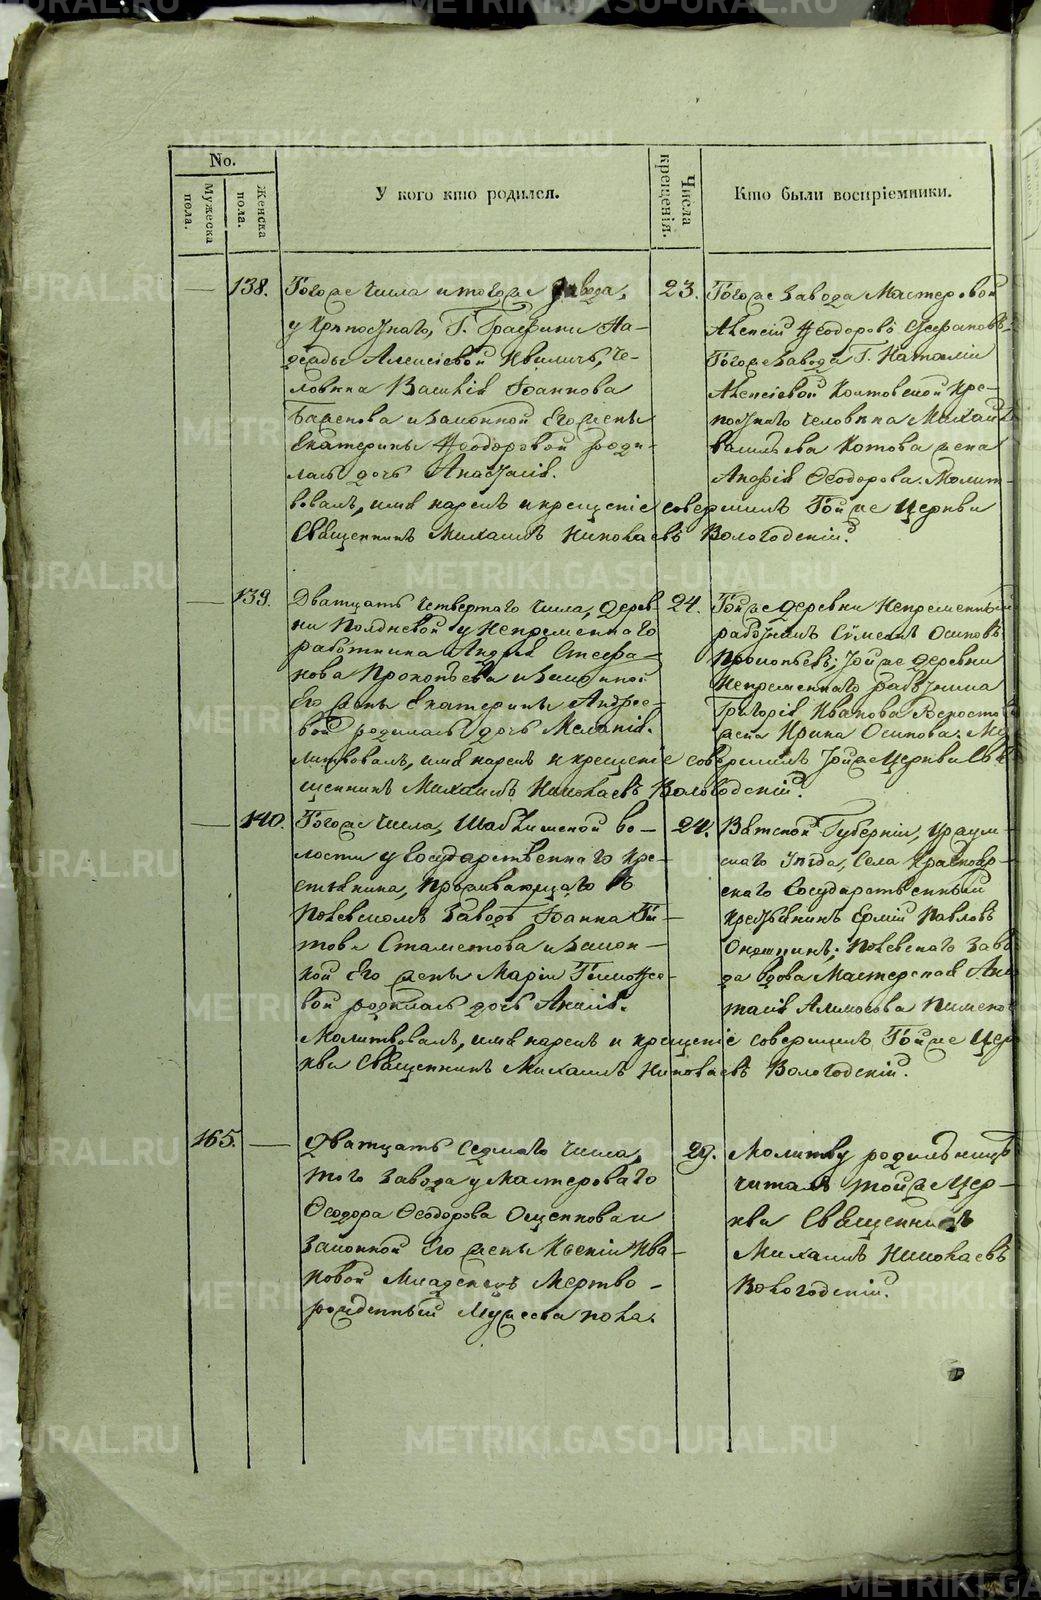 No.
Мужеска пола.
Женска пола.
У кого кто родился.
Числа крещенія.
Кто были воспріемники.
138.
Тогоже числа и тогоже завода,
у крѣпостнаго, Г. Графини На-
дежды Алексіевой человѣка
Іоаннова
и законной Его жены
Екатерины Ѳеодоровой роди-
лась дочь Анастасія.
23.
Тогоже завода Мастеровой
Алексій Ѳеодоровъ
Тогоже завода Г. Наталіи
Алексіевой кре-
постнаго человѣка Михаила
Васильева Котова жена
Ѳеодорова. Молит-
вовалъ, имя нарекъ и крещеніе совершилъ тойже Церкви
Священникъ Михаилъ Николаевъ Вологодскій.
139.
Дватцать четвертаго числа, дерев-
ни Полдневой у Непременнаго
работника Андрея Стефа-
нова Прокопьева и законной
Его жены Екатерины Андрее-
вой родилась дочь Меланія.
24.
Тойже деревни Непременный
работникъ Сѵмеонъ Осиповъ
Прокопьевъ; тойже деревни
Непременнаго работника
Григорія Иванова
жена Ирина Осипова. Мо-
литвовалъ, имя нарекъ и крещеніе совершилъ тойже Церкви Свя-
щенникъ Михаилъ Николаевъ Вологодскій.
140.
Тогоже числа, во-
лости у Государственнаго кре-
стьянина, проживающаго в
заводѣ Іоанна Ти-
това и закон-
ной Его жены Маріи Тимоѳее-
вой родилась дочь
24.
Вятской Губерніи, Уржум-
скаго уѣзда, села Краснояр-
скаго Государственный
крестьянинъ Ермій Павловъ
заво-
да вдова Мастерская
Молитвовалъ, имя нарекъ и крещеніе совершилъ тойже Цер-
кви Священникъ Михаилъ Николаевъ Вологодскій.
165.
Дватцать седмаго числа,
того завода у Мастероваго
Ѳеодора Ѳеодорова Ощепкова и
законной Его жены Ксеніи Ива-
новой Младенецъ Мертво-
рожденный Мужеска пола.
29.
Молитву родильницѣ
читалъ тойже Цер-
кви Священникъ
Михаилъ Николаевъ
Вологодскій.
METRIKI.GASO-URAL.RU